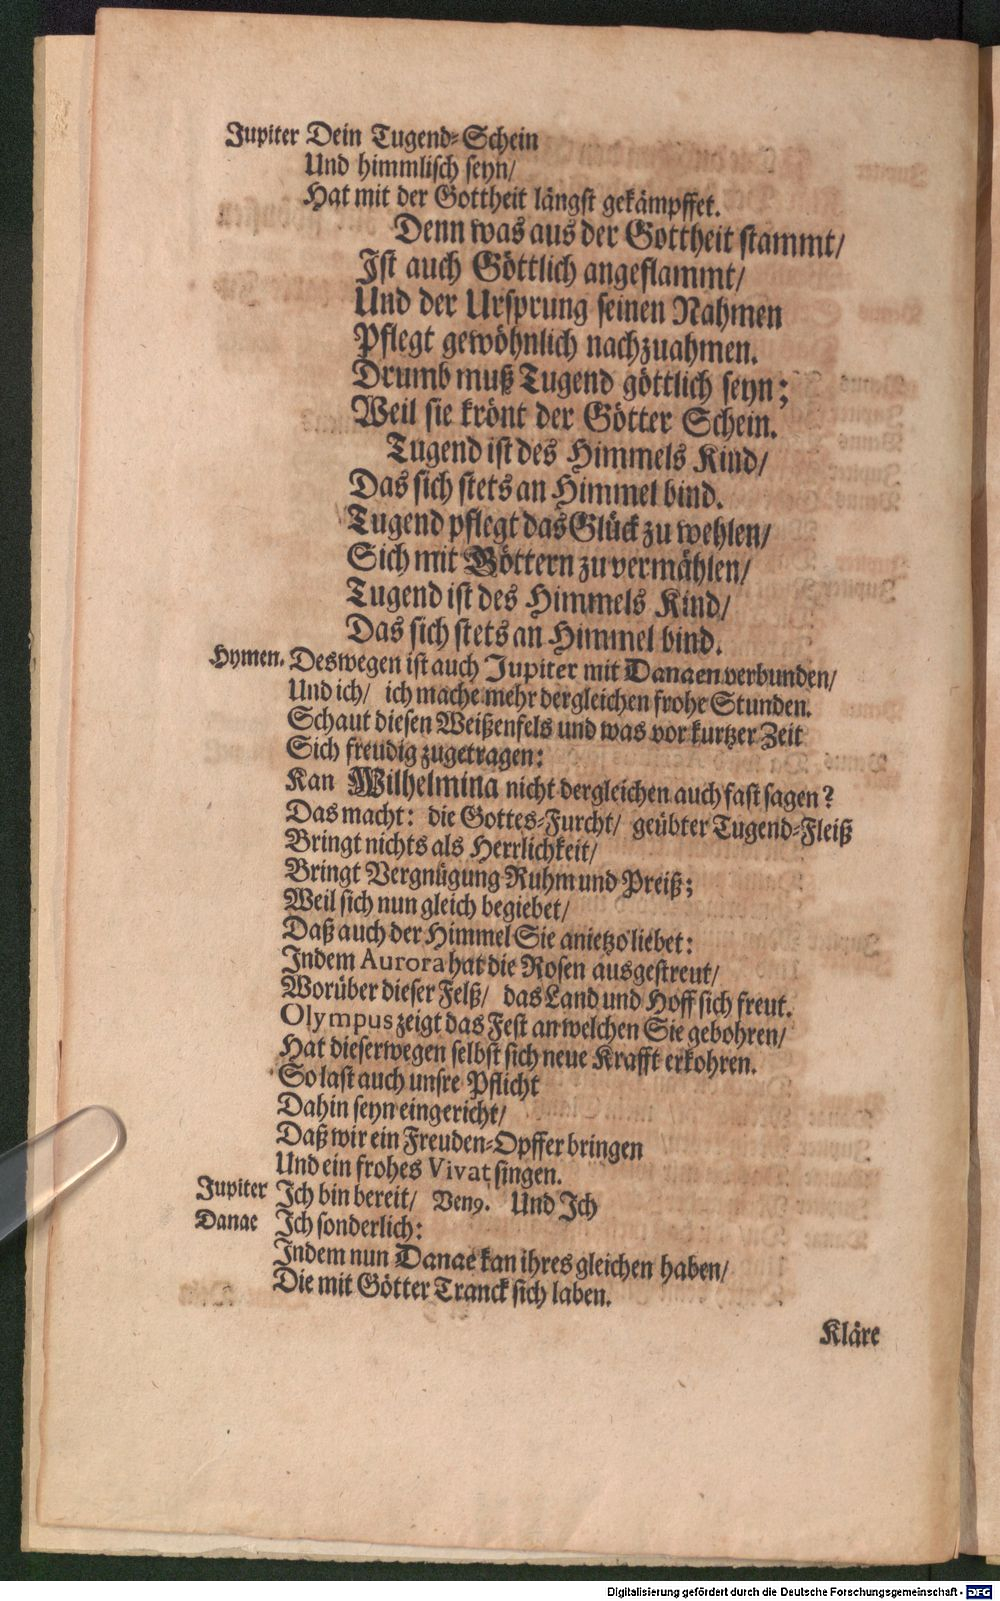 Jupiter Dein Tugend-Schein
Und himmlisch seyn/
Hat mit der Gottheit längst gekämpffet.
Denn was aus der Gottheit stammt/
Ist auch Göttlich angeflammt/
Und der Ursprung seinen Nahmen
Pflegt gewöhnlich nachzuahmen.
Drumb muß Tugend göttlich seyn;
Weil sie krönt der Götter Schein.
Tugend ist des Himmels Kind/
Das sich stets an Himmel bind.
Tugend pflegt das Glück zu wehlen/
Sich mit Göttern zu vermählen/
Tugend ist des Himmels Kind/
Das sich stets an Himmel bind.
Hymen. Deswegen ist auch Jupiter mit Danaen verbunden/
Und ich/ ich mache mehr dergleichen frohe Stunden.
Schaut diesen Weißenfels und was vor kurtzer Zeit
Sich freudig zugetragen:
Kan Wilhelmina nicht dergleichen auch fast sagen?
Das macht: die Gottes-Furcht/ geübter Tugend-Fleiß
Bringt nichts als Herrlichkeit/
Bringt Vergnügung Ruhm und Preiß;
Weil sich nun gleich begiebet/
Daß auch der Himmel Sie anietzo liebet:
Indem Aurora hat die Rosen ausgestreut/
Worüber dieser Felß/ das Land und Hoff sich freut.
Olympus zeigt das Fest an welchen Sie gebohren/
Hat dieserwegen selbst sich neue Krafft erkohren.
So last auch unsre Pflicht
Dahin seyn eingericht/
Daß wir ein Freuden-Opffer bringen
Und ein frohes Vivat singen.
Jupiter Ich bin bereit/ Venꝰ. Und Ich
Danae Ich sonderlich:
Indem nun Danae kan ihres gleichen haben/
Die mit Götter Tranck sich laben.
Kläre
Digitalisierung gefördert durch die Deutsche Forschungsgemeinschaft - DFG